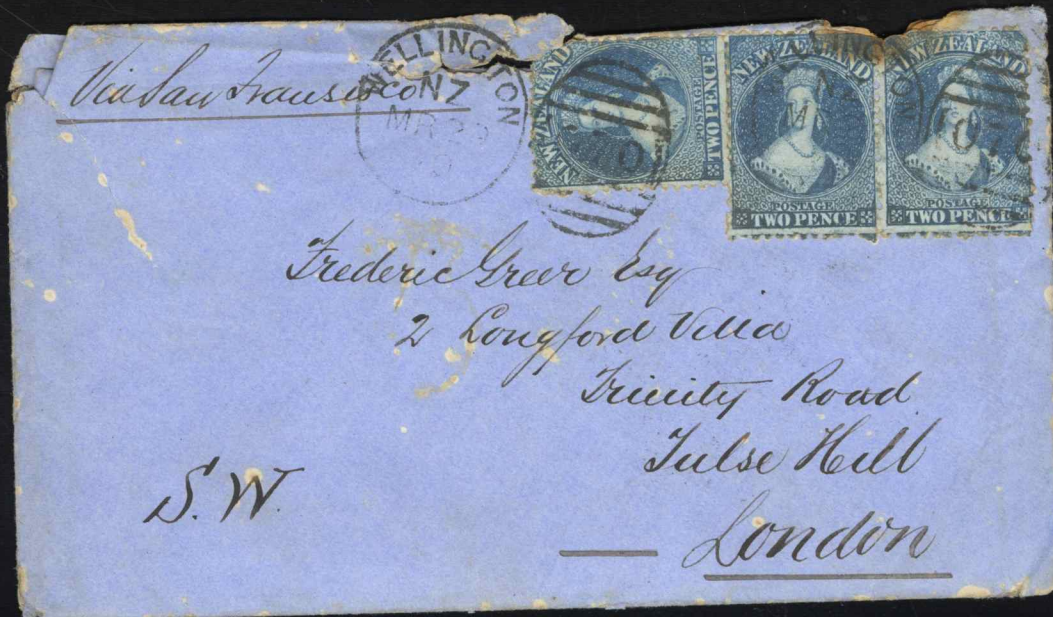 Via San Fransisco
WELLINGTON
NZ
MR
NEW ZEALAND
POSTAGE
TWO PENCE
010
NEW ZEALAND
POSTAGE
TWO PENCE
NEW ZEALAND
POSTAGE
TWO PENCE
010
Frederic Greer Esq
2 Longford Villa
Trinity Road
Tulse Hill
S.W.
London